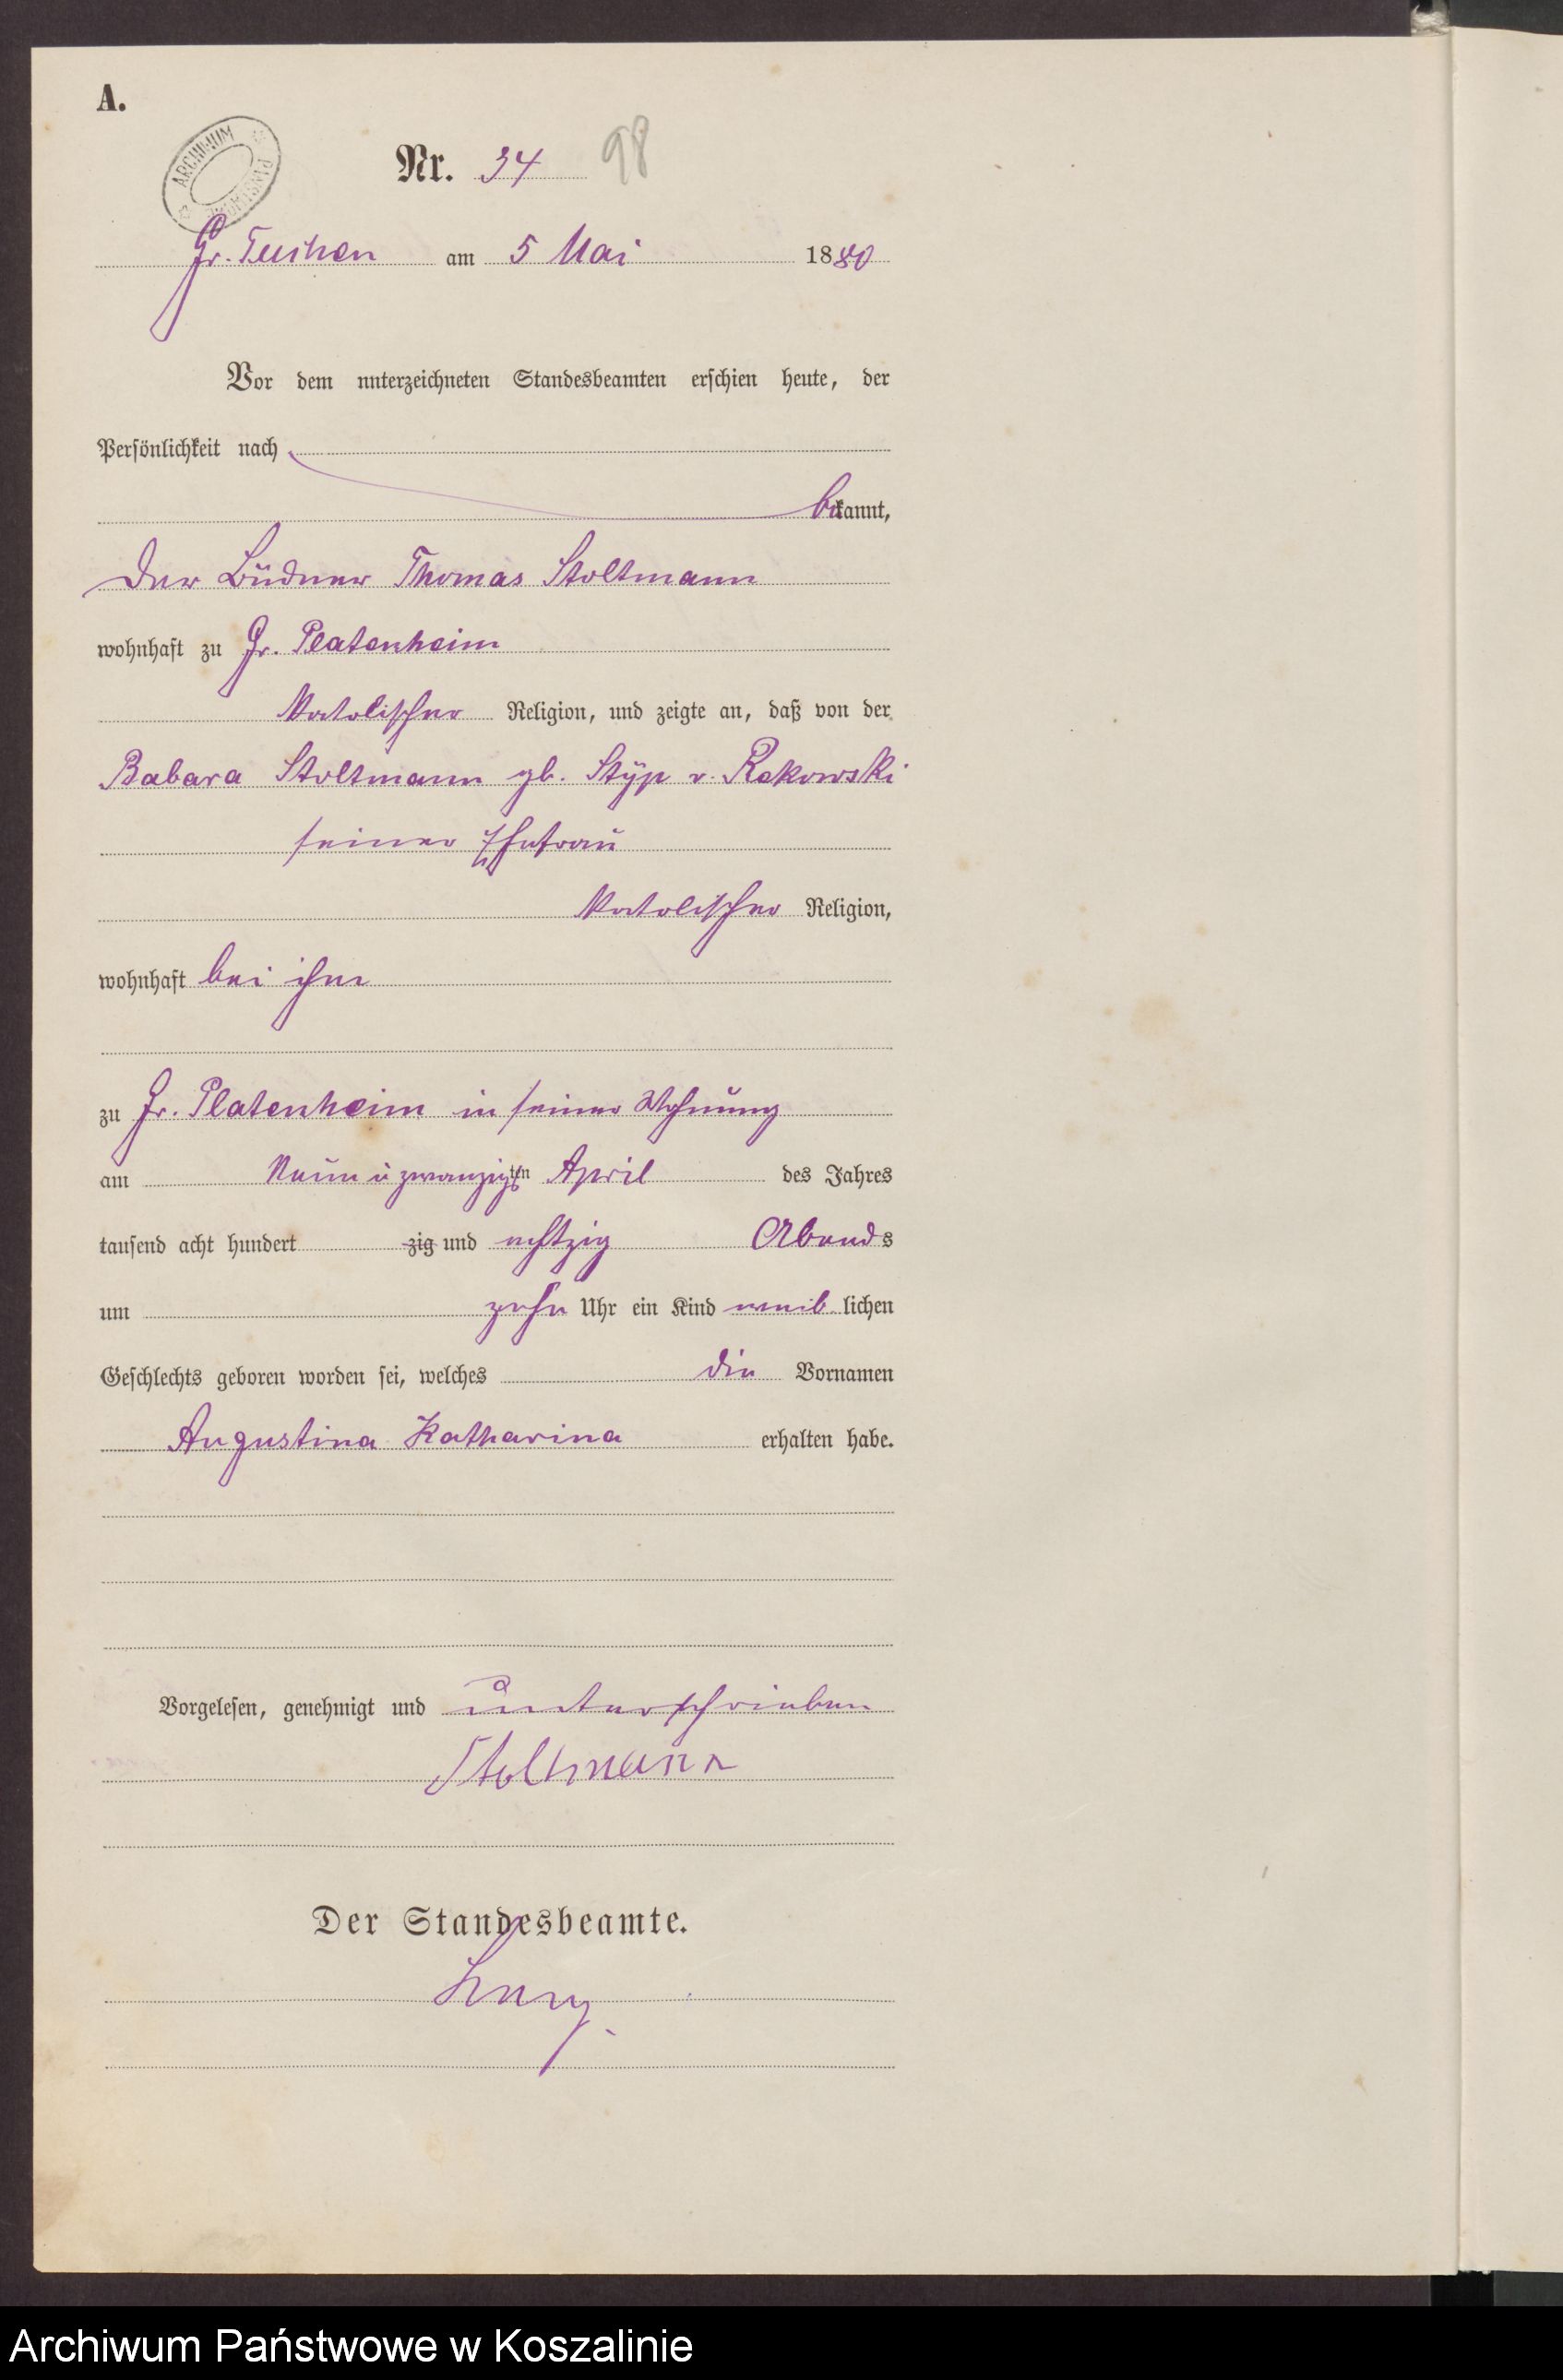 A.
ARCHIWUM PAŃSTWOWE
Nr. 34 98
Gr. Tuchen am 5 Mai 1880
Vor dem unterzeichneten Standesbeamten erschien heute, der
Persönlichkeit nach
bekannt,
Der Büdner Thomas Stoltmann
wohnhaft zu Gr. Platenheim
katolischer Religion, und zeigte an, daß von der
Babara Stoltmann gb. Stÿp v. Rekowski
seiner Ehefrau
katolischer Religion,
wohnhaft bei ihm
zu Gr. Platenheim in seiner Wohnung
am Neun u zwanzigsten April des Jahres
tausend acht hundert zig und achtzig Abends
um zehn Uhr ein Kind weiblichen
Geschlechts geboren worden sei, welches die Vornamen
Augustina Katharina erhalten habe.
Vorgelesen, genehmigt und unterschrieben
Stoltmann
Der Standesbeamte.
Archiwum Państwowe w Koszalinie